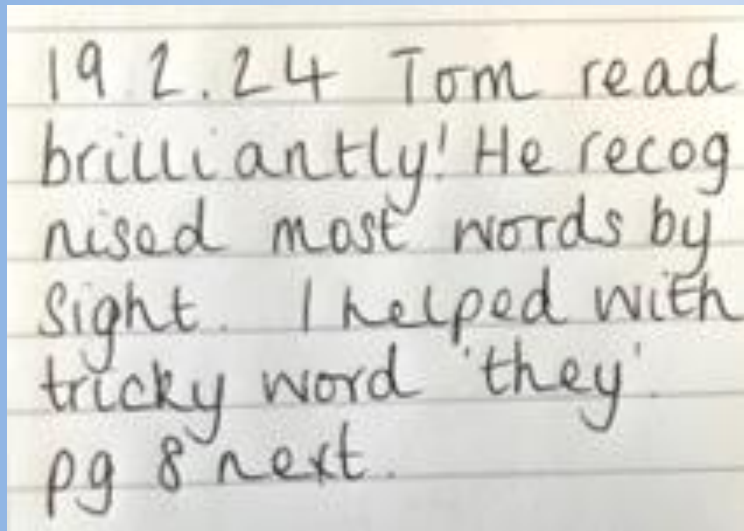 19.2.24 Tom read
brilliantly! He recog
nised most words by
sight. I helped with
tricky word 'they'.
pg 8 next.